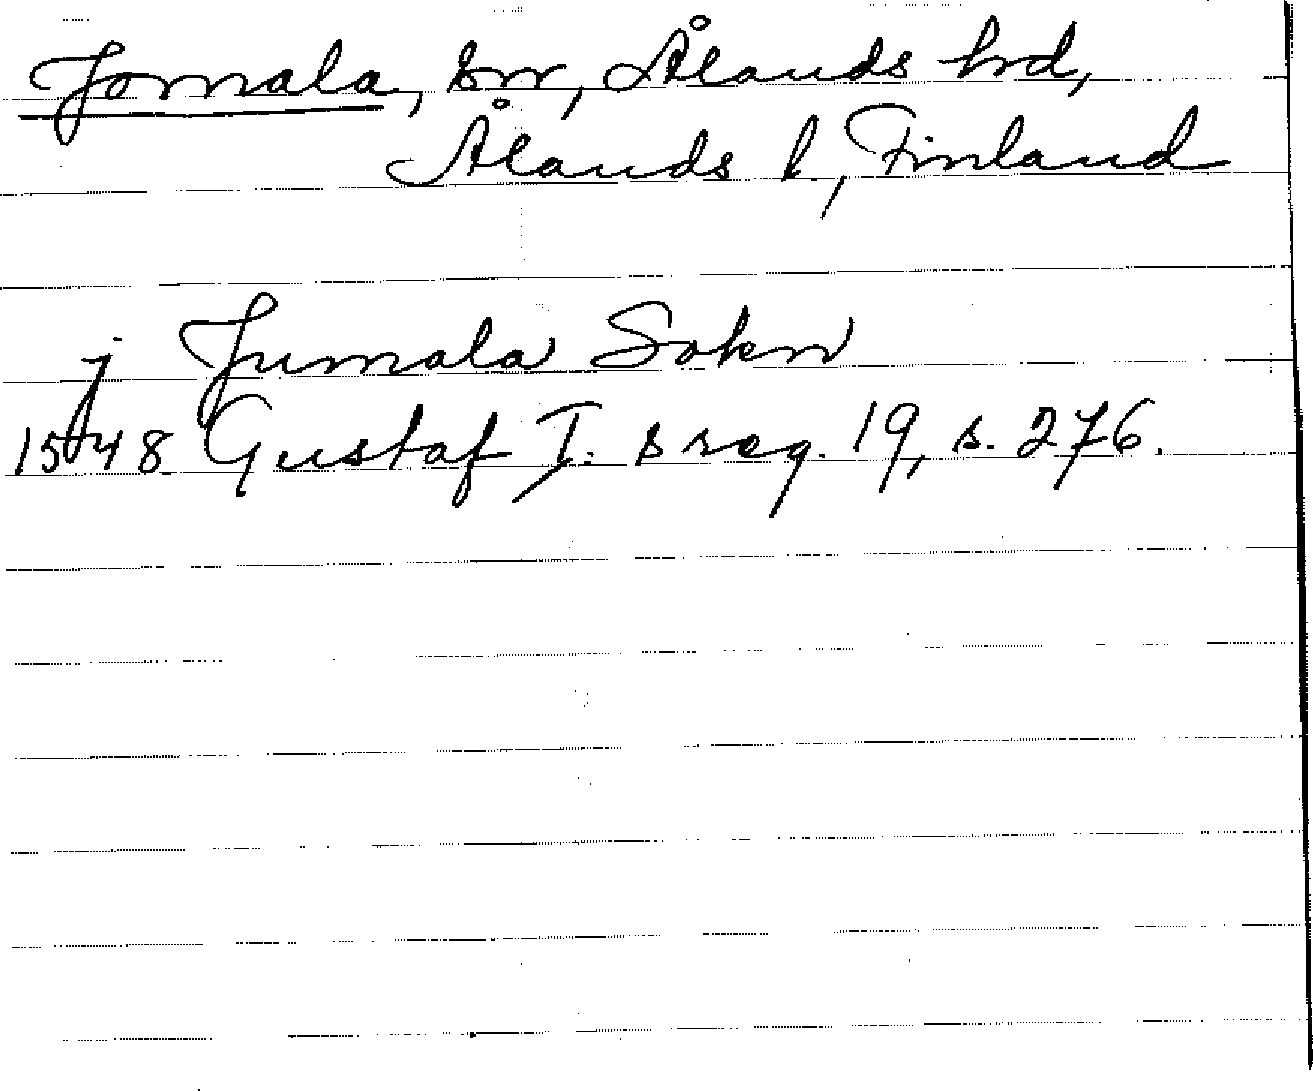 Jomala, sn, Ålands hd,
Ålands l, Finland
j Jumala Sokn
1548 Gustaf I:s reg. 19, s. 276.